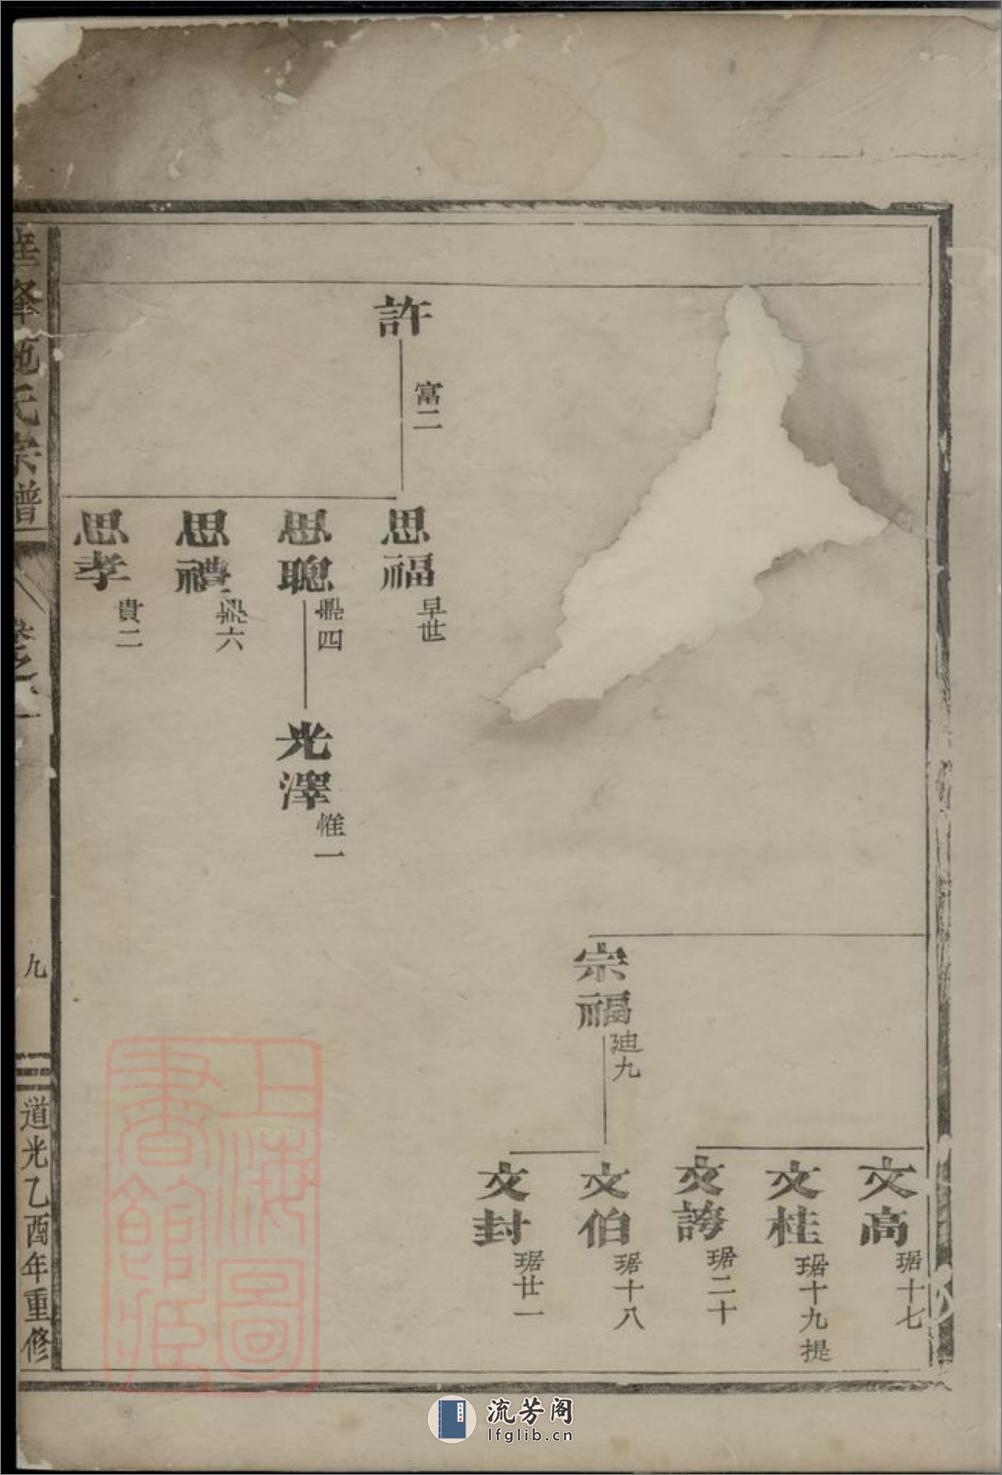 文高 琚十七
文桂 琚十九提
文誇 琚二十
宗福 廸九
文伯 琚十八
文封 琚廿一
許 富二
思福 早世
思聰 鼎四
光澤 惟一
思禮 鼎六
思孝 貴二
峰施氏宗譜
卷之一
九
道光乙酉年重修
上海圖
書館藏
流芳阁
lfglib.cn